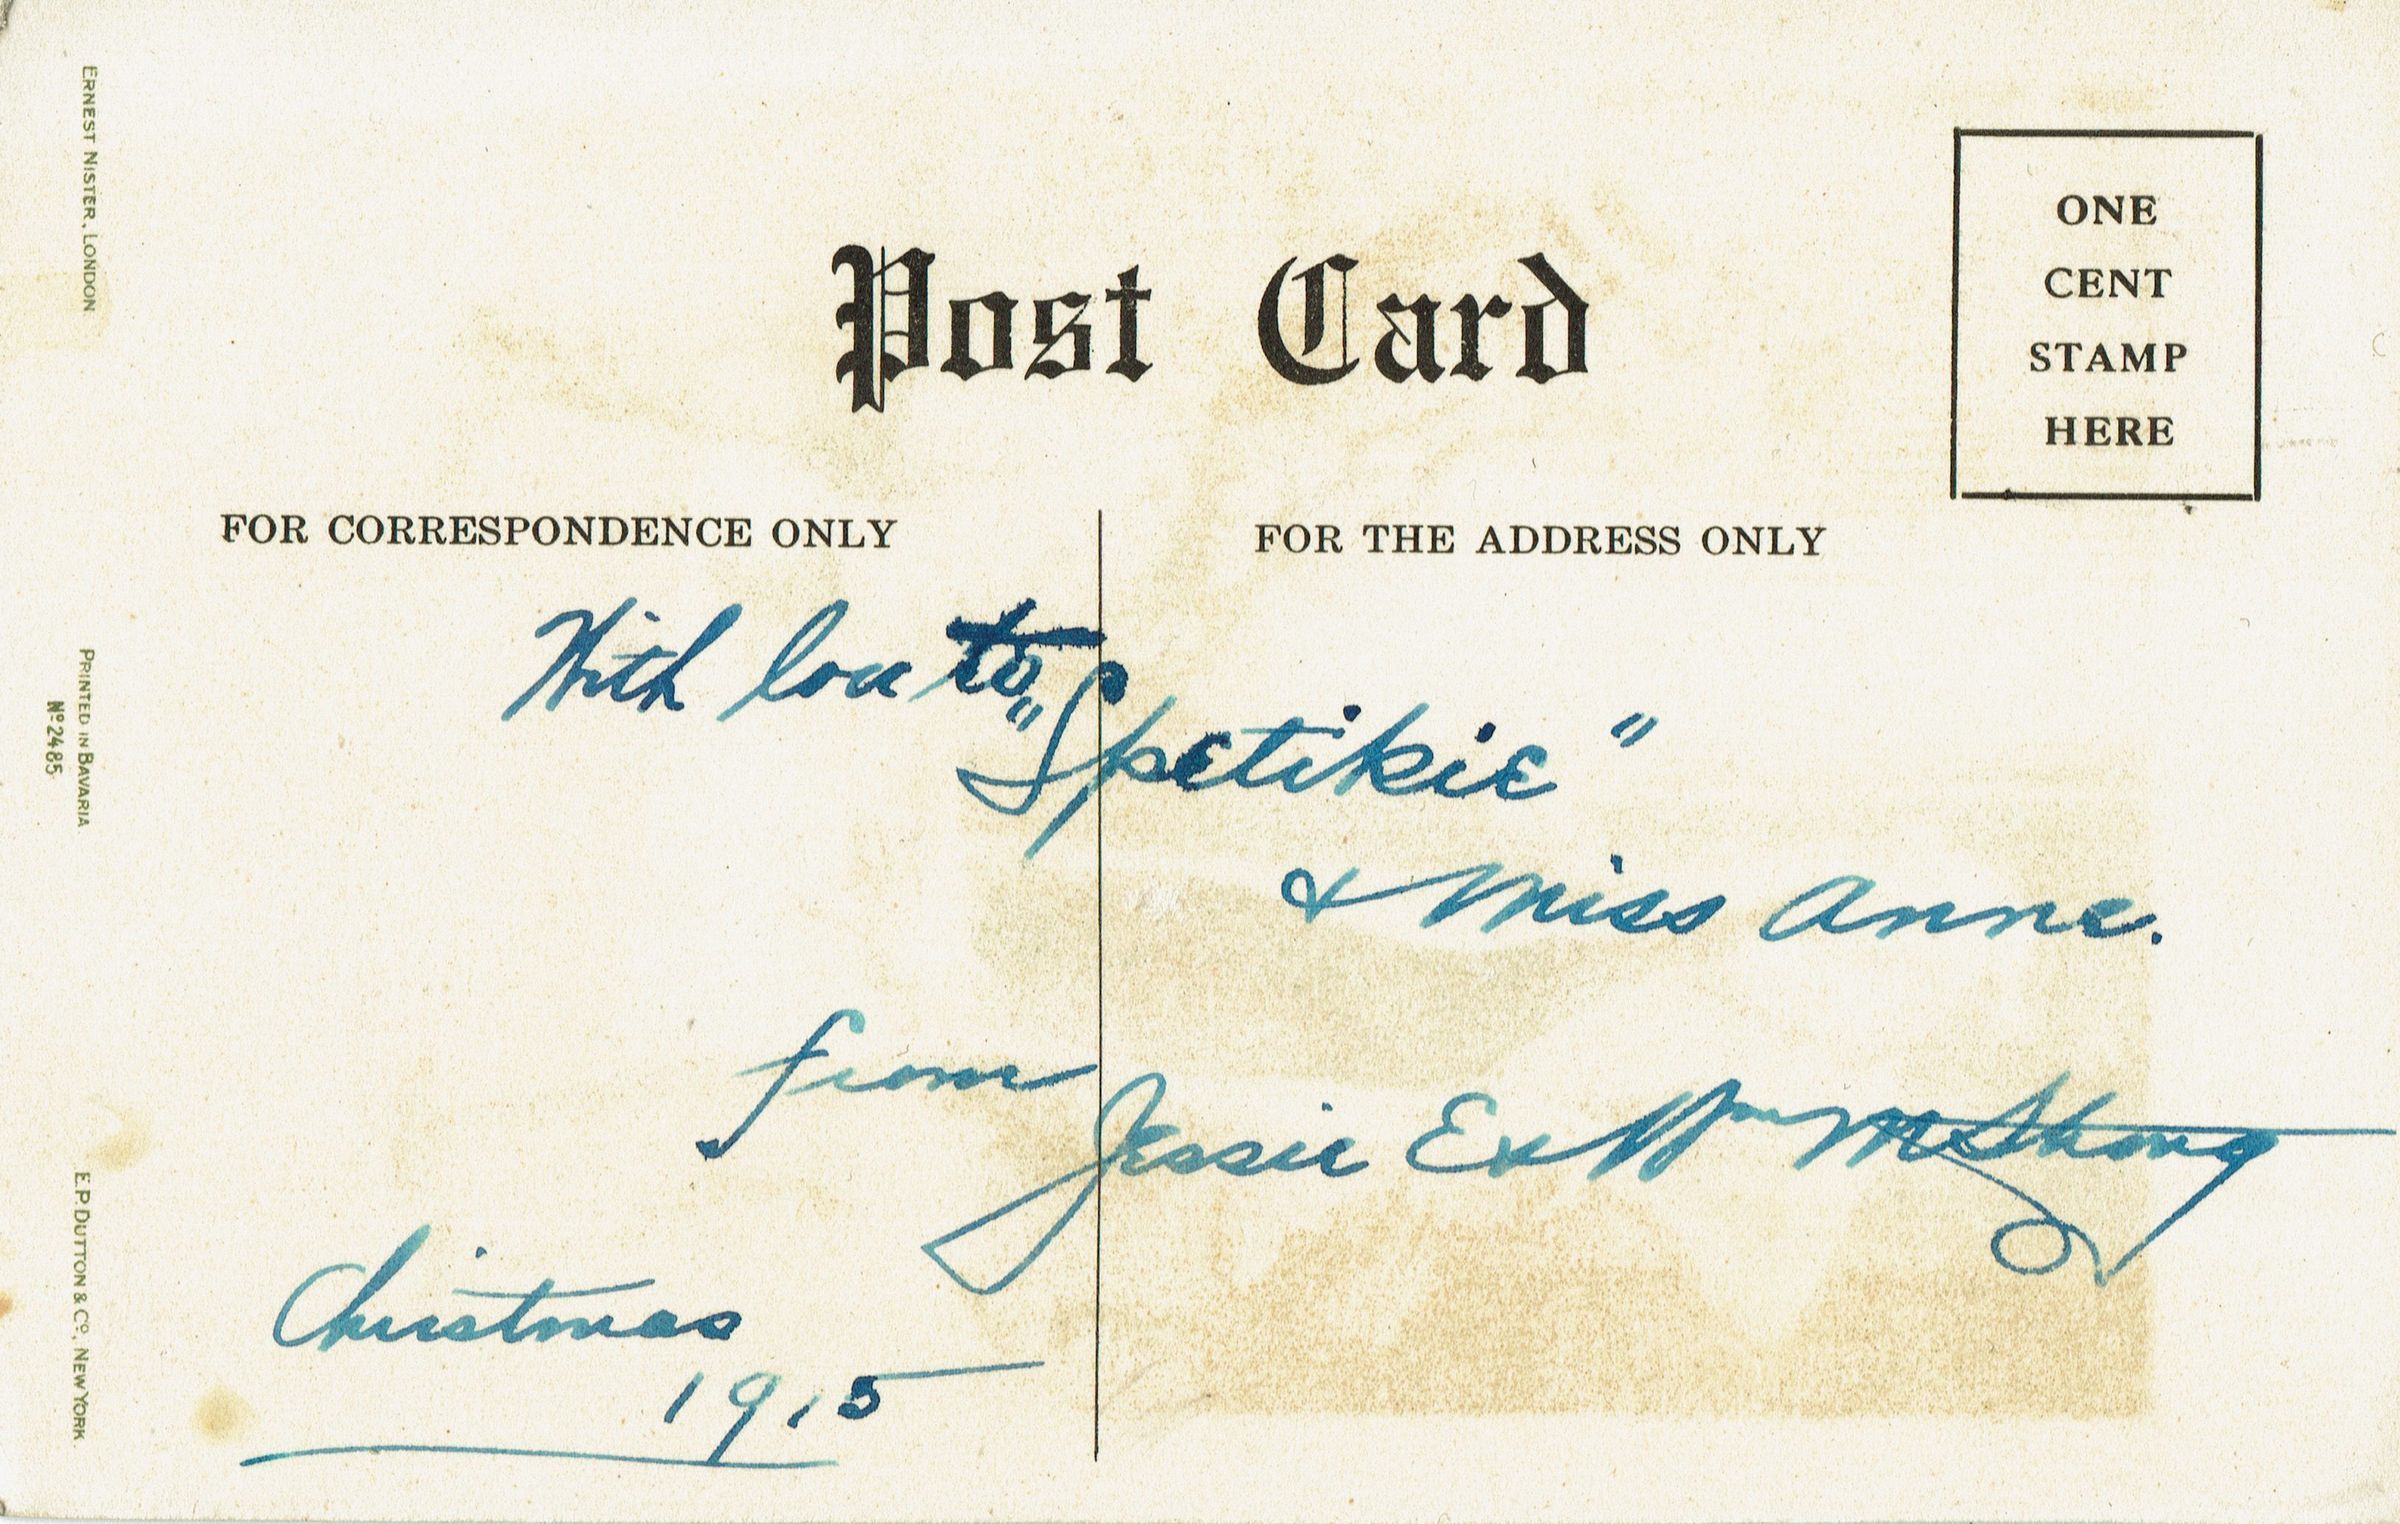 Post Card
ONE
CENT
STAMP
HERE
FOR CORRESPONDENCE ONLY
FOR THE ADDRESS ONLY
With love to
"Spetikie"
& Miss Anne.
from
Jessie E & Wm
Christmas
1915
ERNEST NISTER, LONDON
PRINTED IN BAVARIA
Nº 2485
E. P. DUTTON & Cº, NEW YORK.